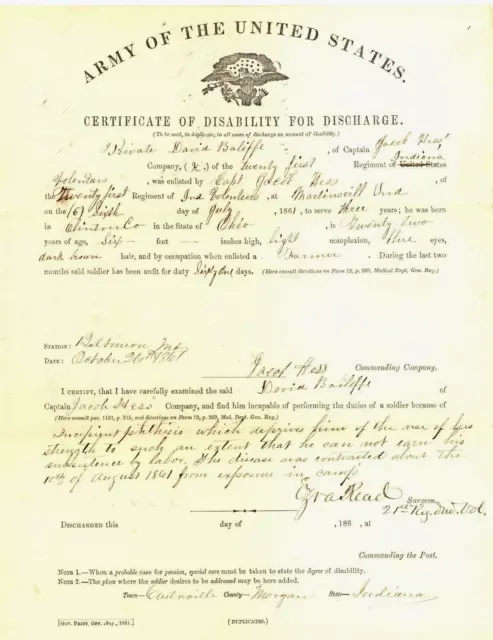 ARMY OF THE UNITED STATES.
CERTIFICATE OF DISABILITY FOR DISCHARGE.
(To be used, in duplicate, in all cases of discharge on account of disability.)
Private David Baliffe , of Captain Jacob Hess'
Company, (K) of the Twenty first Regiment of United States Indiana
Volunteers , was enlisted by Capt Jacob Hess of
the Twenty first Regiment of Ind Volunteers , at Martinsvill Ind
on the (6) Sixth day of July , 1861, to serve three years; he was born
in Clinton Co in the State of Ohio , is Twenty two
years of age, Six feet — inches high, light complexion, Blue eyes,
dark brown hair, and by occupation when enlisted a Farmer . During the last two
months said soldier has been unfit for duty Sixty One days. (Here consult directions on Form 13, p. 269, Medical Dept. Gen. Reg.)
STATION: Baltimore Md
DATE: October 26th 1861
Jacob Hess
Commanding Company.
I CERTIFY, that I have carefully examined the said David Baliffe of
Captain Jacob Hess Company, and find him incapable of performing the duties of a soldier because of
(Here consult par. 1131, p. 215, and directions on Form 13, p. 269, Med. Dept. Gen. Reg.)
Incipient phthisis which deprives him of the use of his
strength to such an extent that he can not earn his
subsistence by labor. The disease was contracted about the
10th of August 1861 from exposure in camp
Ezra Read
Surgeon.
21st Reg. Ind. Vol.
DISCHARGED this day of , 186 , at
Commanding the Post.
NOTE 1.—When a probable case for pension, special care must be taken to state the degree of disability.
NOTE 2.—The place where the soldier desires to be addressed may be here added.
Town— County— Morgan State— Indiana
[GOV. PRINT. OFF. Aug., 1861.] (DUPLICATES.)